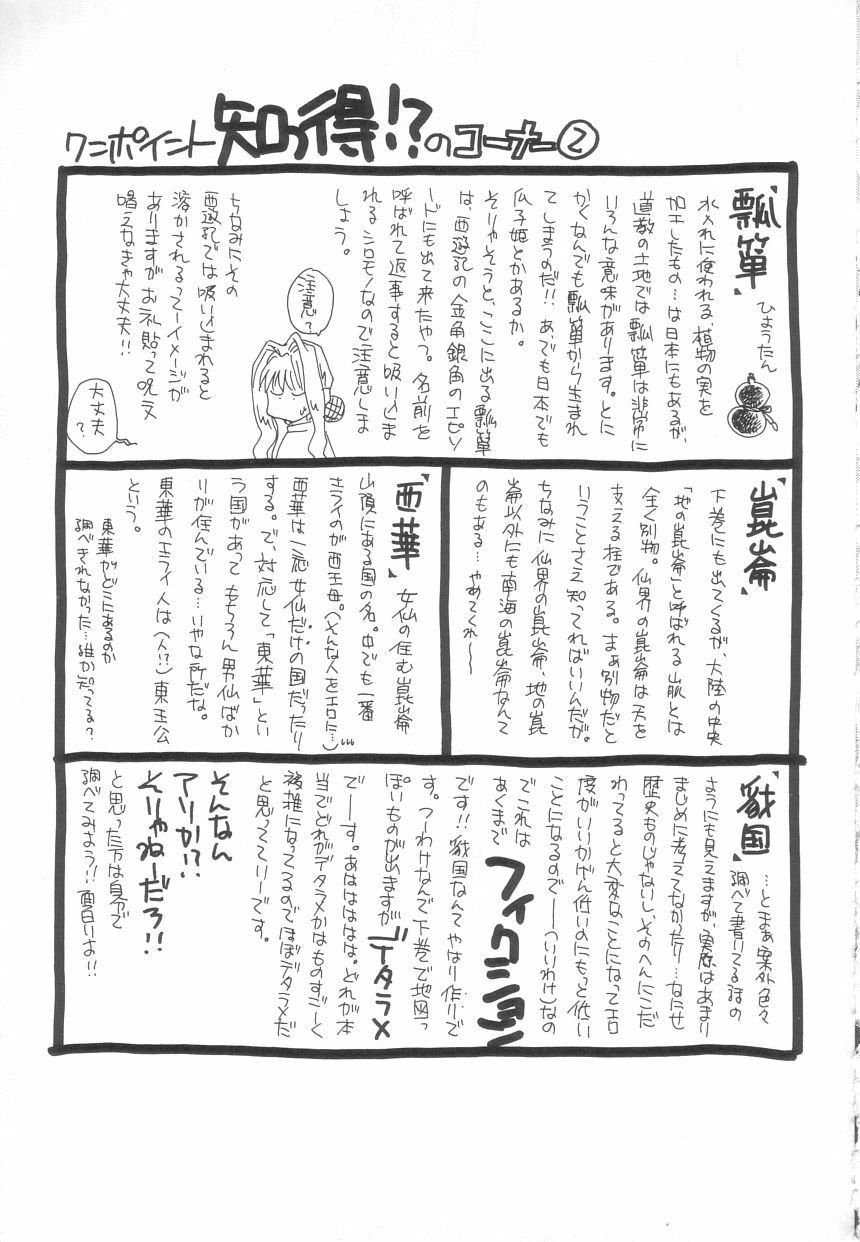 ワンポイント知っ得!?のコーナー②
『瓢箪』
ひょうたん
水入れに使われる、植物の実を
加工したもの…は日本にもあるが、
道教の土地では瓢箪は非常に
いろんな意味があります。とに
かくなんでも瓢箪から生まれ
てしまうのだ!!あ、でも日本でも
瓜子姫とかあるか。
そりゃそうと、ここに出る瓢箪
は、西遊記の金角銀角のエピソ
ードにも出て来たやつ。名前を
呼ばれて返事すると吸い込ま
れるシロモノなので注意しま
しょう。
注意?
ちなみにその
西遊記では吸い込まれると
溶かされるってーイメージが
ありますがお札貼って呪文
唱えなきゃ大丈夫!!
大丈夫?
『崑崙』
下巻にも出てくるが、大陸の中央
「地の崑崙」と呼ばれる山脈とは
全く別物。仙界の崑崙は天を
支える柱である。まぁ別物だと
いうことさえ知ってればいいんだが。
ちなみに仙界の崑崙、地の崑
崙以外にも南海の崑崙なんて
のもある…やめてくれ〜〜
『西華』
女仙の住む崑崙
山頂にある国の名。中でも一番
エライのが西王母。(そんな人をエロに…)
西華は一応女仙だけの国だったり
する。で、対応して「東華」とい
う国があってもちろん男仙ばか
りが住んでいる…いやな所だな。
東華のエライ人は(人!?)東王公
という。
東華がどこにあるのか
調べきれなかった…誰か知ってる?
『戩国』
…とまぁ案外色々
調べて書いてる話の
ようにも見えますが、実際はあまり
まじめに考えてなかったり…なにせ
歴史ものじゃないし、そのへんにこだ
わってると大変なことになってエロ
度がいいかげん低いのにもっと低い
ことになるので──(いいわけ)なの
でこれは
あくまで
フィクション
です!!戩国なんてやはり作りで
す。つーわけなんで下巻で地図っ
ぽいものが出ますがデタラメ
でーす。あはははは。どれが本
当でどれがデタラメかはものすごーく
複雑になってるのでほぼデタラメだ
と思ってていーです。
そんなん
アリか!?
そりゃねーだろ!!
と思った方は自分で
調べてみよう!!面白いよ!!